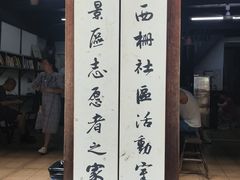 西栅社區活動室
景區志愿者之家